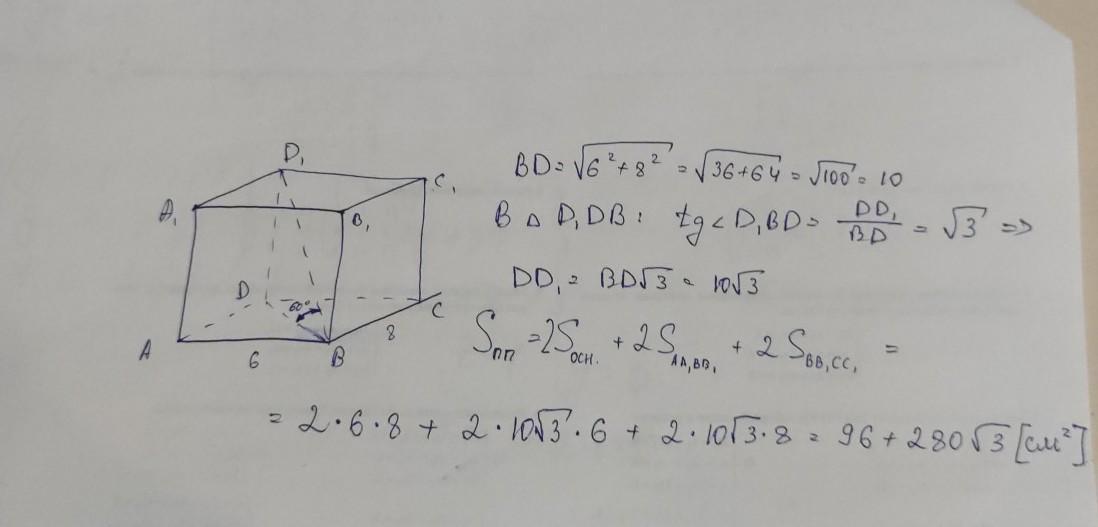 D₁
C₁
A₁
B₁
D
60°
C
A
6
B
8
BD = √(6² + 8²) = √(36+64) = √100 = 10
В △ D₁DB : tg < D₁BD = DD₁/BD = √3 =>
DD₁ = BD√3 = 10√3
Sпп = 2Sосн. + 2S_AA₁BB₁ + 2S_BB₁CC₁ =
= 2·6·8 + 2·10√3·6 + 2·10√3·8 = 96 + 280√3 [см²]